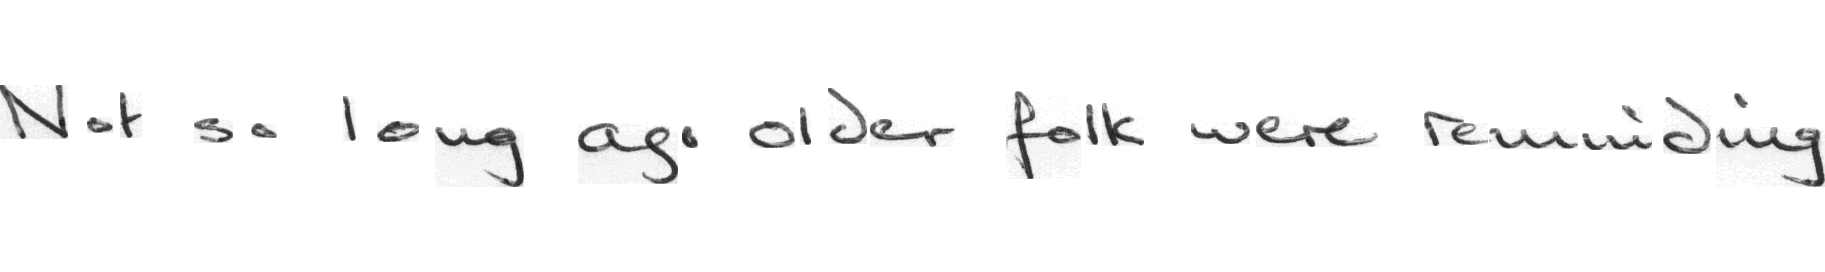 Not so long ago older folk were reminding